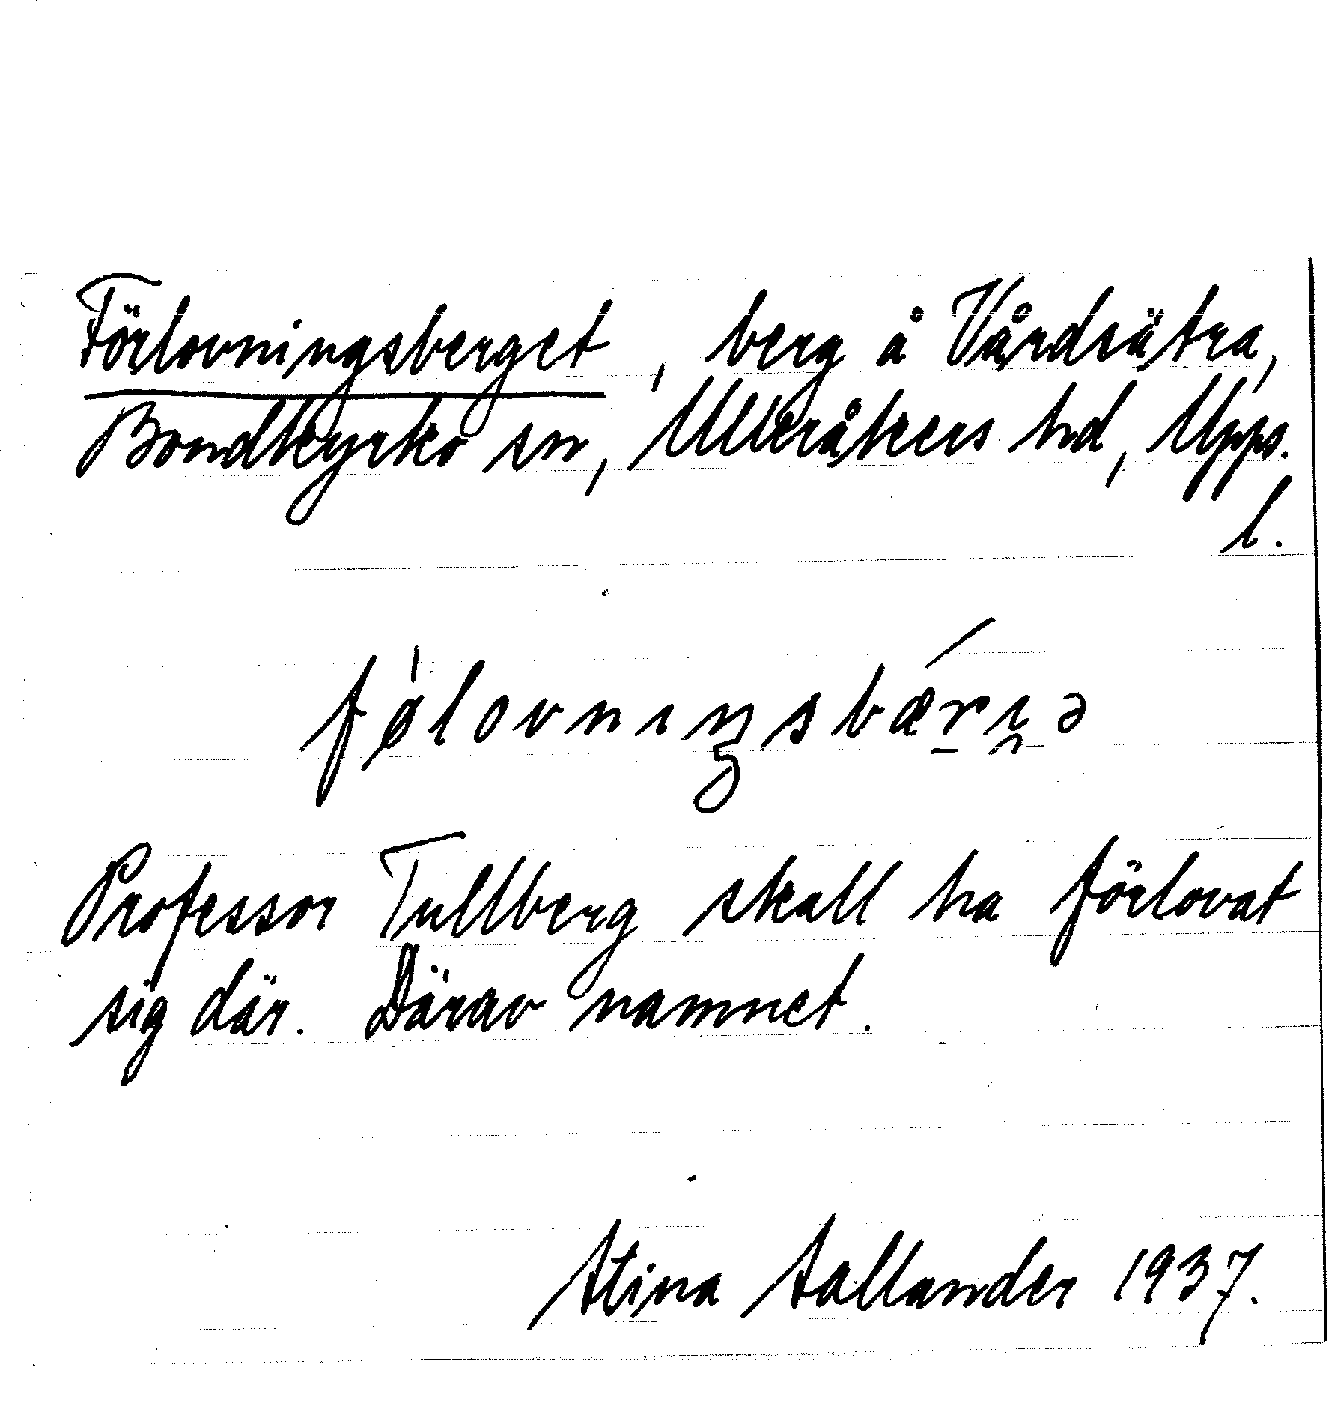 Förlovningsberget, berg å Vårdsätra,
Bondkyrko sn, Ulleråkers hd, Upps.
l.
Professor Tullberg skall ha förlovat
sig där. Därav namnet.
Stina Sallander 1937.